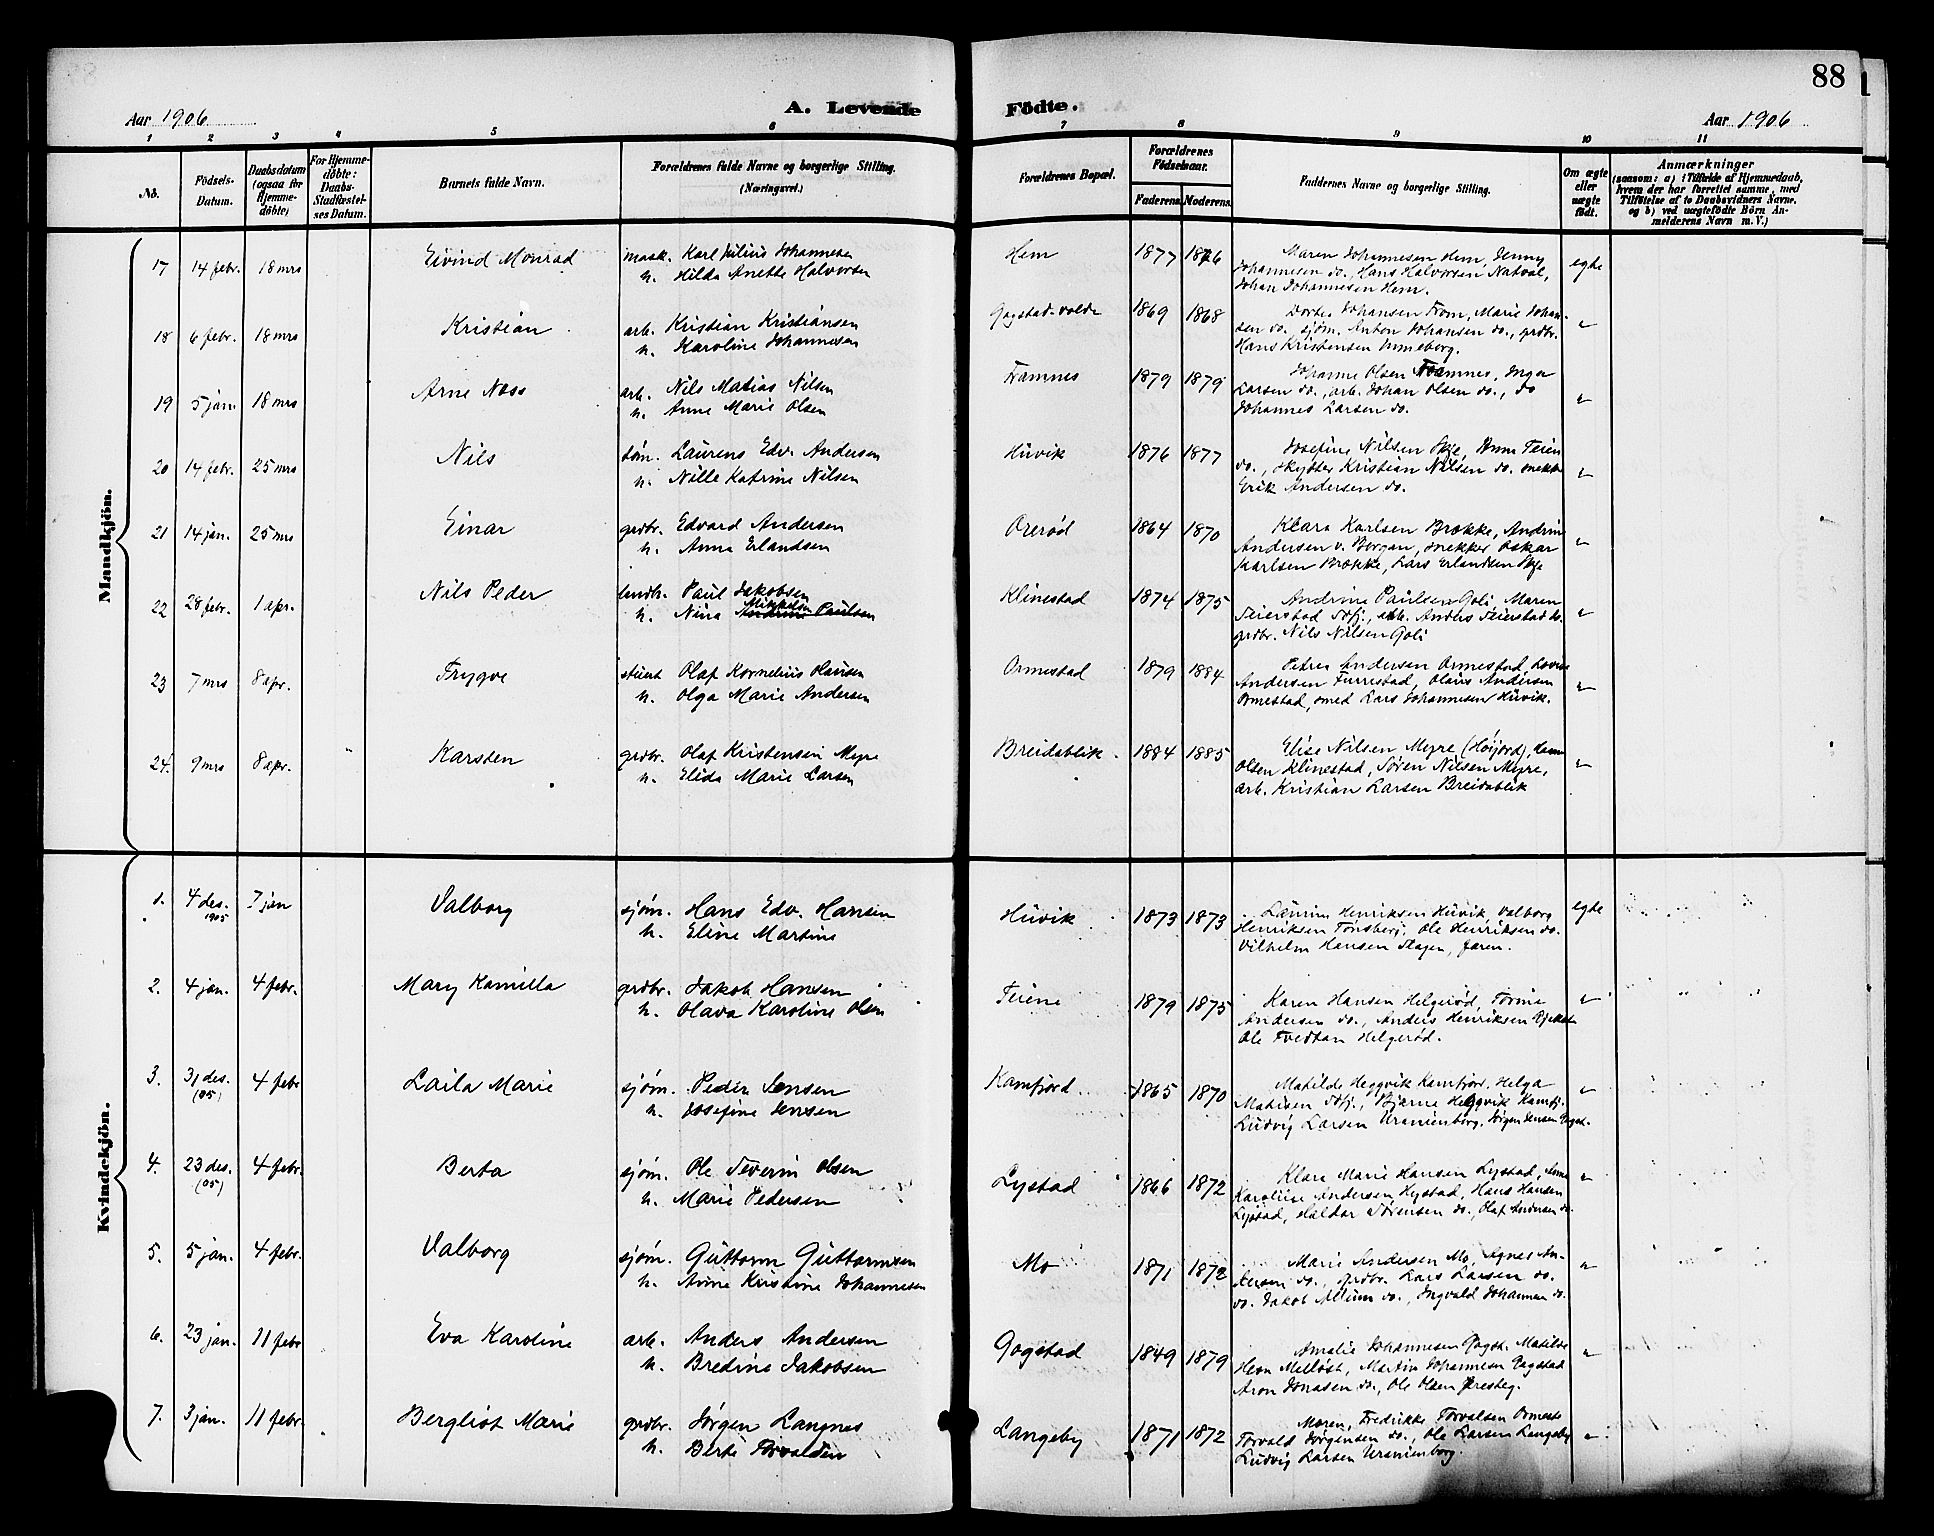 88
Aar 1906
A. Levende
Födte.
Aar 1906
1 2 3 4 5 6 7 8 9 10 11
No.
Födsels-
Datum.
Daabsdatum
(ogsaa för
Hjemme-
döbte)
For Hjemme-
döbte:
Daabs-
Stadfæstel-
ses Datum.
Barnets fulde Navn.
Forældrenes fulde Navne og borgerlige Stilling.
(Næringsvei.)
Forældrenes Bopæl.
Forældrenes
Födselsaar.
Faderens. Moderens.
Faddernes Navne og borgerlige Stilling.
Om ægte
eller
uægte
födt.
Anmærkninger
(saasom: a) i Tilfælde af Hjemmedaab,
hvem der har forrettet samme, med
Tilföielse af to Daabsvidners Navne,
og b) ved uægtefödte Börn An-
melderens Navn m. V.)
Mandkjön.
17 14 febr. 18 mrs Eivind Monrad
mask. Karl Julius Johannesen
h. Hilda Anette Halvorsen
Hem 1877 1876
Maren Johannesen Hem, Jenny
Johannesen do., Hans Halvorsen Natvál,
Johan Johannesen Hem.
egte
18 6 febr. 18 mrs Kristian
arb. Kristian Kristiansen
h. Karoline Johannesen
Gogstad-volde 1869 1868
Dorte Johansen From, Marie Johan-
sen do., sjøm. Anton Johansen do., grdbr.
Hans Kristensen Unneberg.
"
19 5 jan. 18 mrs Arne Næss
arb. Nils Matias Nilsen
h. Anne Marie Olsen
Framnes 1879 1879
Johanne Olsen Framnes, Inga
Larsen do., arb. Johan Olsen do., do
Johannes Larsen do.
"
20 14 febr. 25 mrs Nils
tøm. Laurens Edv. Andersen
h. Nille Katrine Nilsen
Húvik 1876 1877
Josefine Nilsen Skje, Anna Teien
do., skytter Kristian Nilsen do. snekker
Erik Andersen do.
"
21 14 jan. 25 mrs Einar
grdbr. Edvard Andersen
h. Anna Erlandsen
Orerød 1864 1870
Klara Karlsen Brekke, Andrine
Andersen v. Borgan, snekker Oskar
Karlsen Brekke, Lars Erlandsen Skje
"
22 28 febr. 1 apr. Nils Peder
landh. Paul Jakobsen
Mikkelsen
h. Nina Andrine Paulsen
Klinestad 1874 1875
Andrine Paulsen Goli, Maren
Feierstad Sdfj., arb. Anders Feierstad do.
grdbr. Nils Nilsen Goli
"
23 7 mrs 8 apr. Trygve
stuert Olaf Kornelius Hansen
h. Olga Marie Andersen
Ormestad 1879 1884
Petra Andersen Ormestad, Lovise
Andersen Furrestad, Olaus Andersen
Ormestad, smed Lars Johannesen Húvik.
"
24. 9 mrs 8 apr. Karsten
grdbr. Olaf Kristensen Myre
h. Elida Marie Larsen
Breidablik. 1884 1885
Elise Nilsen Myre (Höijord), Hanna
Olsen Klinestad, Søren Nilsen Myre,
arb. Kristian Larsen Breidablik
"
Kvindekjön.
1. 4 des. 7 jan Valborg
1905
sjøm. Hans Edv. Hansen
h. Eline Martine
Húvik 1873 1873
Laurine Henriksen Húvik, Valborg
Henriksen Tønsberg, Ole Henriksen do.
Vilhelm Hansen Slagen, faren.
egte
2. 4 jan. 4 febr. Mary Kamilla
grdbr. Jakob Hansen
h. Olava Karoline Olsen
Teiene 1879 1875
Karen Hansen Helgerød, Torine
Andersen do., Anders Henriksen Gjekstad
Ole Tvedtan Helgerød.
"
3. 31 des. 4 febr Laila Marie
(05)
sjøm. Peder Jensen
h. Josefine Jensen
Kamfjord 1865 1870
Matilde Heggvik Kamfjord, Helga
Matisen Sdfj., Bjarne Heggvik Kamfj.
Ludvig Larsen Uranienborg, Jørgen Jensen Gogst.
"
4. 23 des. 4 febr. Berta
(05)
sjøm. Ole Severin Olsen
h. Marie Pedersen
Lystad 1866 1872
Klara Marie Hansen Lystad, Anne
Karoline Andersen Hystad, Hans Hansen
Lystad, Haldor Sørensen do., Olaf Andersen do.
"
5. 5 jan. 4 febr. Valborg
sjøm. Guttorm Guttormsen
h. Anne Kristine Johannesen
Mo 1871 1872
Marie Andersen Mo, Agnes An-
dersen do., grdbr. Lars Larsen do.
do. Jakob Allum do., Ingvald Johannesen do.
"
6. 23 jan. 11 febr Eva Karoline
arb. Anders Andersen
h. Bredine Jakobsen
Gogstad 1849 1879
Amalie Johannesen Gogst. Matilde
Hem Melløst, Martin Johannesen Gogstad
Aron Jonasen do., Ole Olsen Presteg.
"
7. 3 jan. 11 febr. Bergliot Marie
grdbr. Jørgen Langnes
h. Berte Torvaldsen
Langeby 1871 1872
Moren, Fredrikke Torvalsen Ormestad
Torvald Jørgensen do., Ole Larsen Langeby
Ludvig Larsen Uranienborg.
"